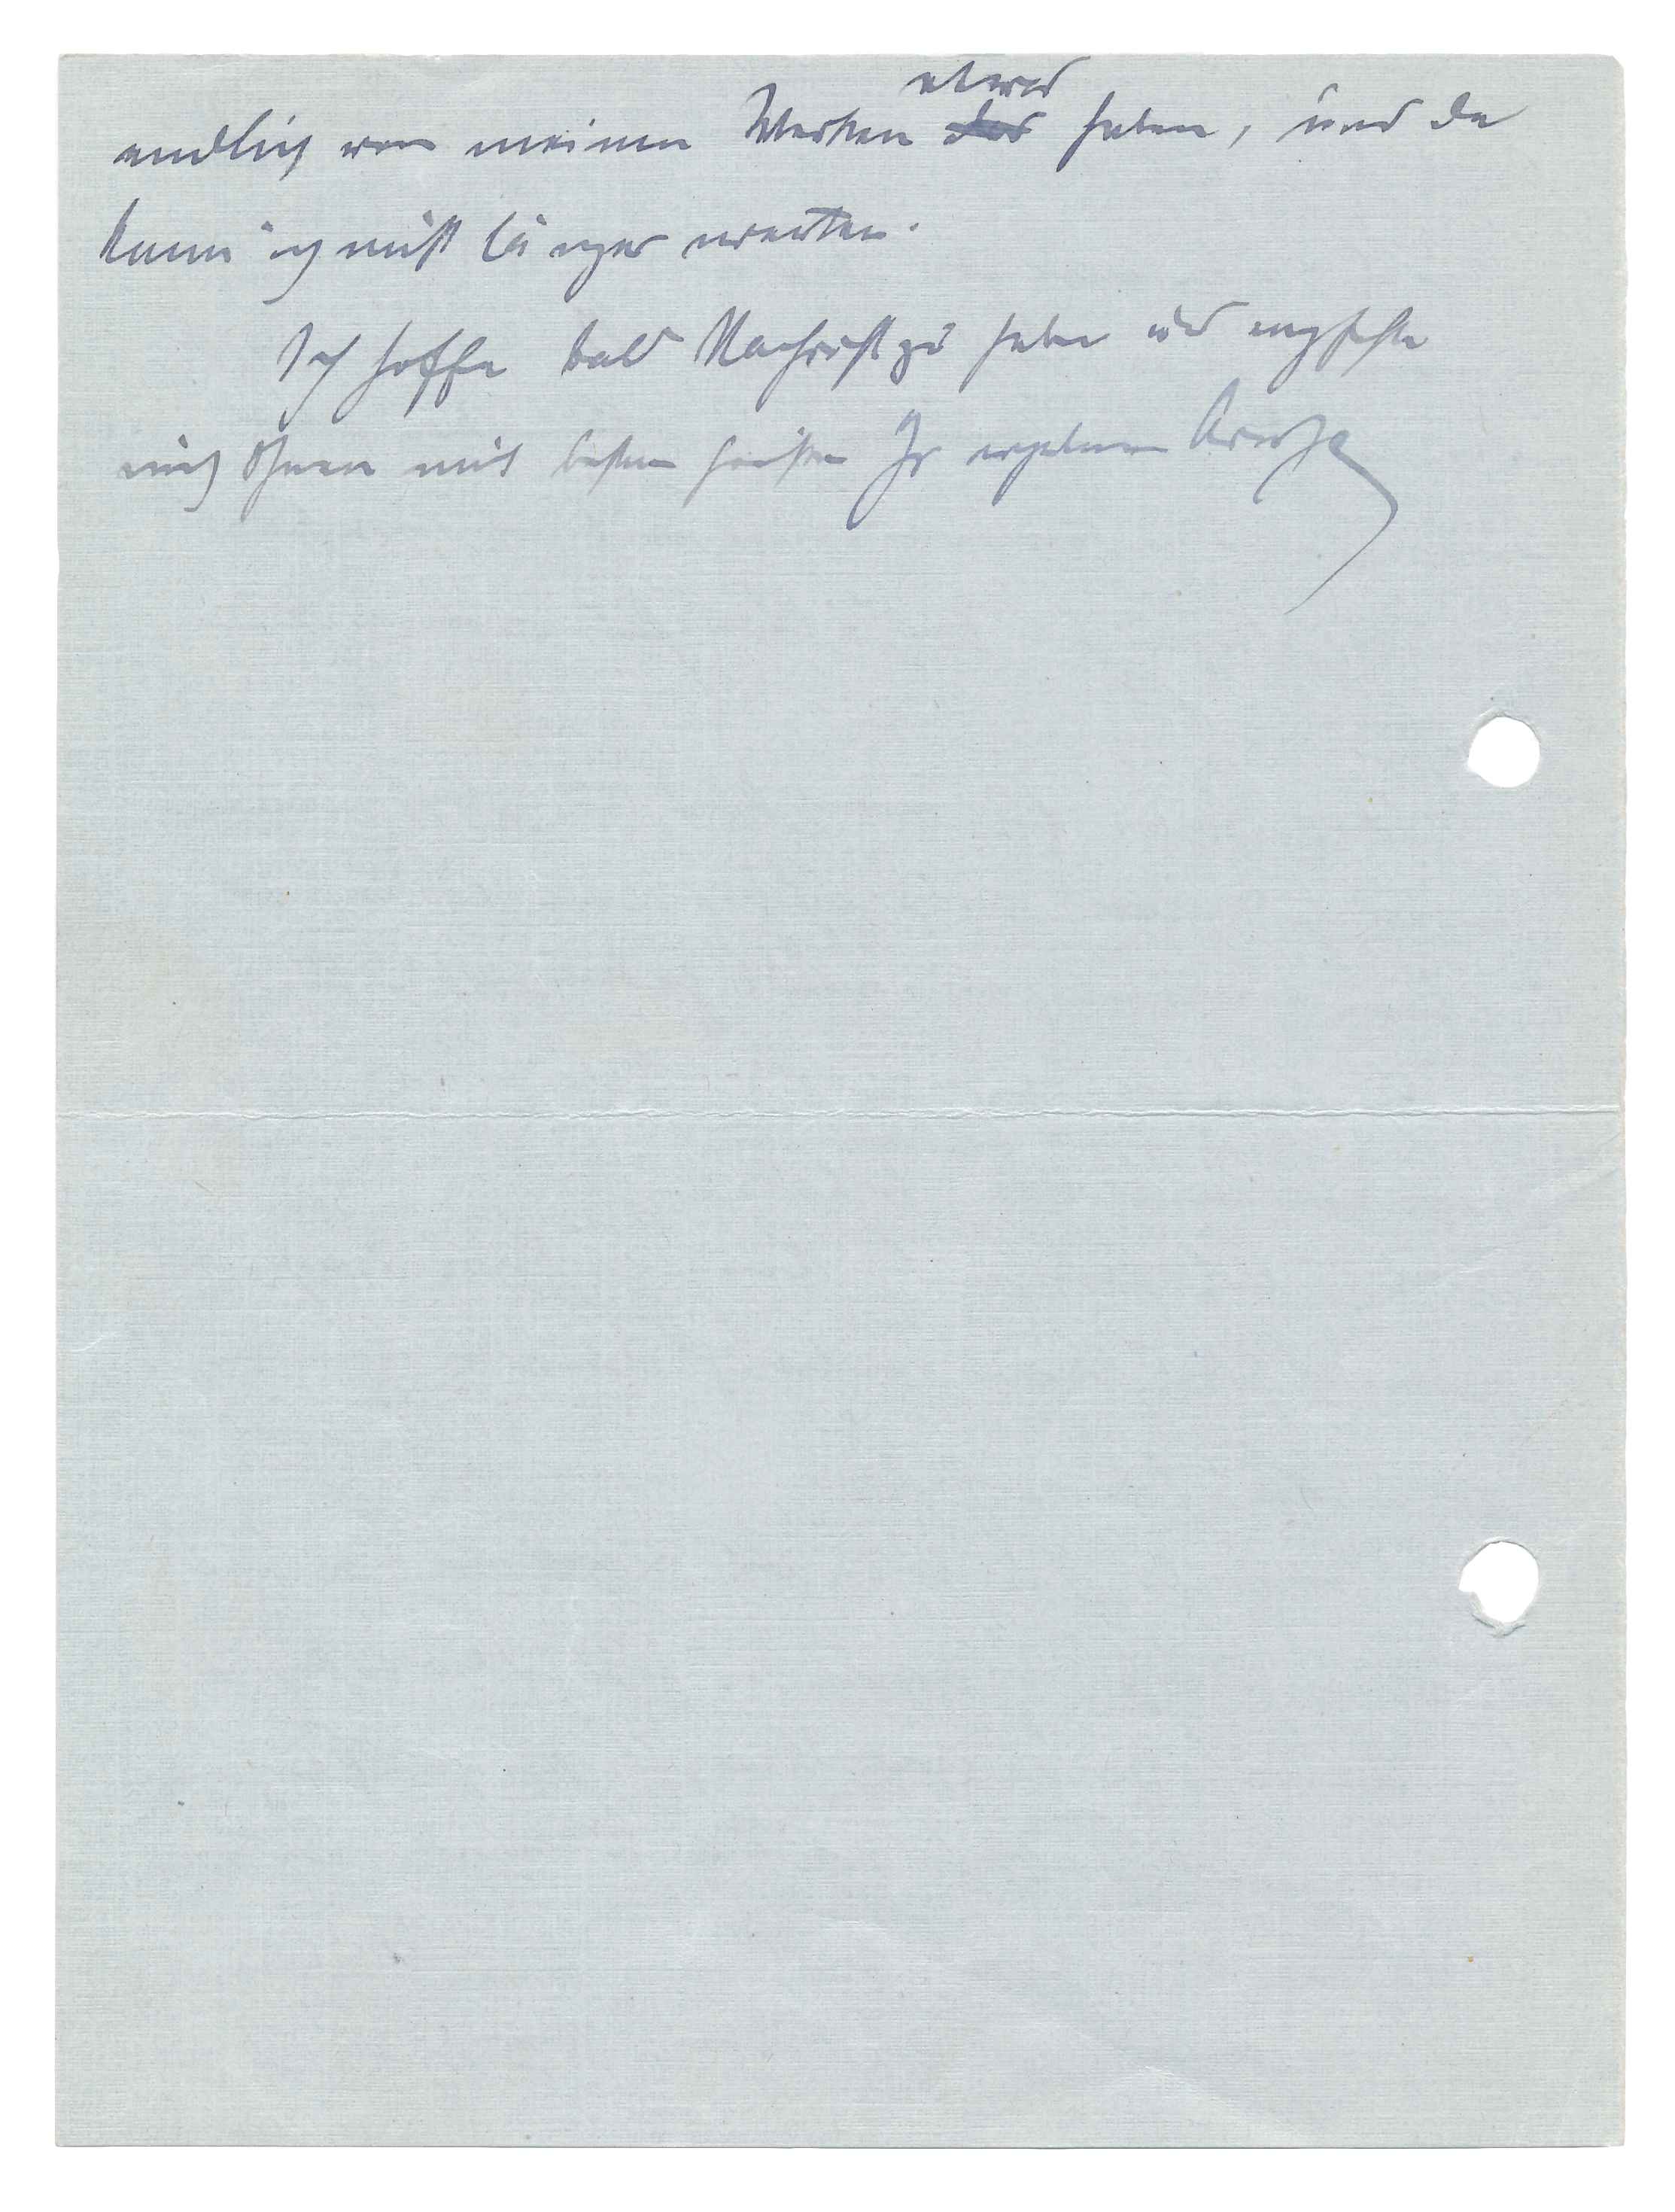 endlich von meinen Werken etwas haben, und da
kann ich nicht länger warten.
Ich hoffe bald Nachricht zu haben und empfehle
mich Ihnen mit besten Grüßen Ihr ergebener